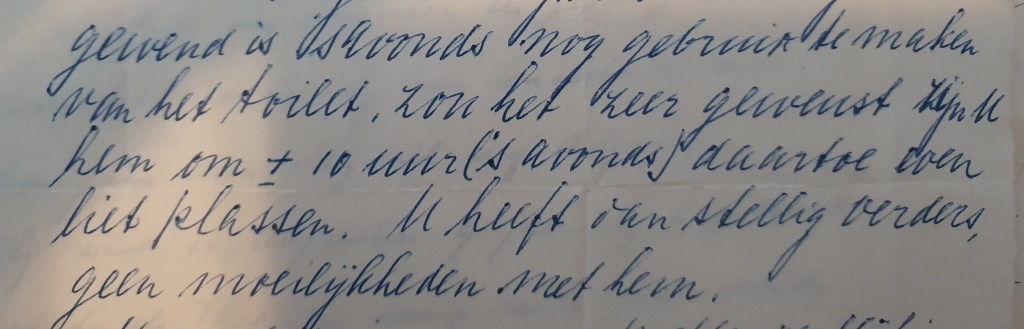 gewend is 's avonds nog gebruik te maken
van het toilet, zou het zeer gewenst zijn U
hem om ± 10 uur ('s avonds) daartoe even
liet plassen. U heeft dan stellig verders,
geen moeilijkheden met hem.